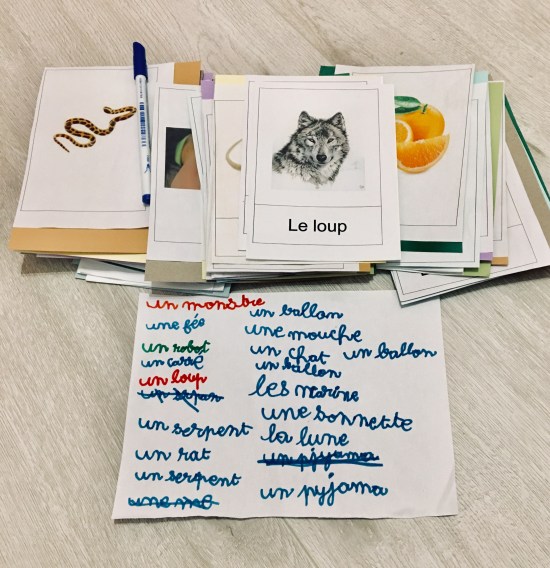 Le loup
un monstre
une fée
un robot
un carré
un loup
un serpan
un serpent
un rat
un serpent
une mo
un ballon
une mouche
un chat un ballon
un ballon
les marine
une sonnette
la lune
un pjyama
un pyjama